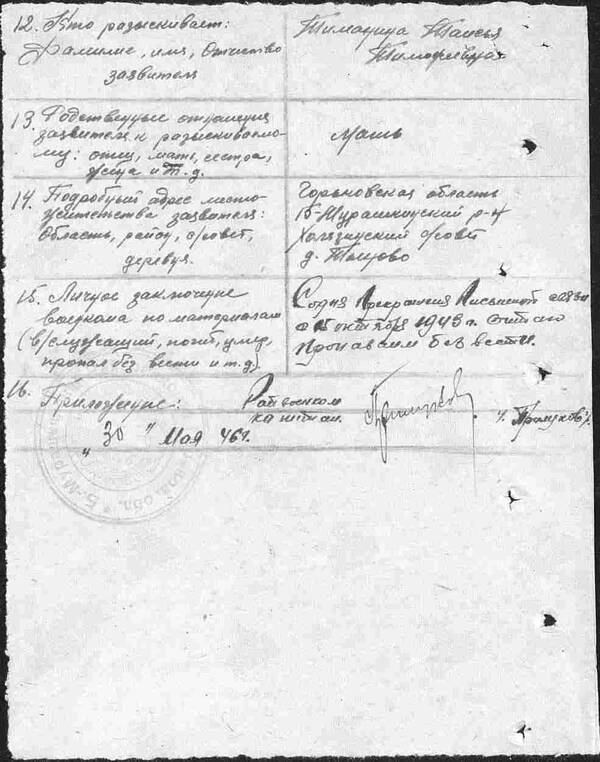 12. Кто разыскивает:
Фамилие, имя, отчество
заявителя
Тимарица Таисья
Тимофеевна
13. Родственные отношения
заявителя к разыскиваемо-
му: отец, мать, сестра,
жена и т.д.
мать
14. Подробный адрес место-
жительства заявителя:
область, район, с/совет,
деревня
Горьковская область
Б-Мурашкинский р-н
Холязинский с/совет
д.
15. Личное заключение
военкома по материалам
(в/служащий, погиб, умер,
пропал без вести и т.д.)
прекращения письменной связи
октября 1943 г. считаю
пропавшим без вести.
16.
Приложение:
Райвоенком
капитан
"30" Мая 46г.